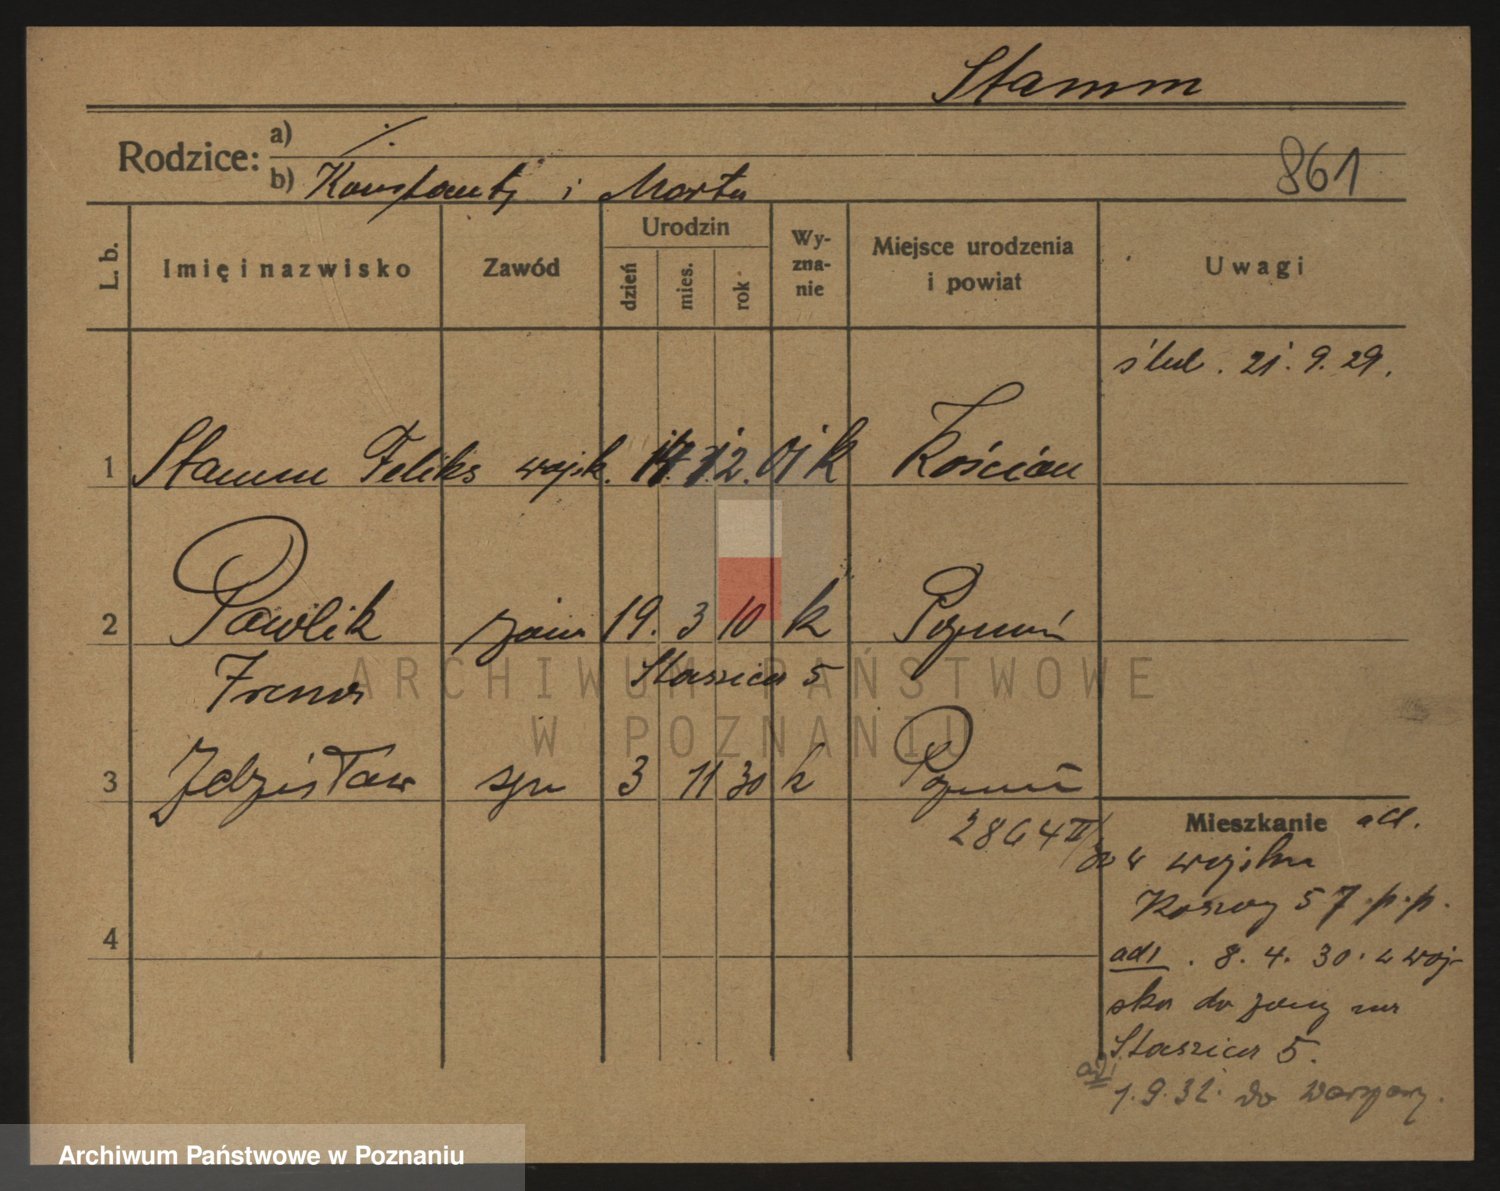 Stamm
Rodzice: a) ·/·
861
b) Konstanty i Marta
L. b.
Imię i nazwisko
Zawód
Urodzin
dzień
mies.
rok
Wy-
zna-
nie
Miejsce urodzenia
i powiat
Uwagi
ślub. 21. 9. 29.
1 Stamm Feliks wojsk. 14. 12. 01 k Kościan
2 Pawlik żona 19. 3 10 k Poznań
Irena Staszica 5
3 Zdzisław syn 3 11 30 k Poznań
2864 II/30
Mieszkanie
w wojsku
Koszary 57 p. p.
4
ad. 8. 4. 30. z woj-
ska do żony na
Staszica 5.
1. 9. 32. do Warszawy.
ARCHIWUM PAŃSTWOWE
W POZNANIU
Archiwum Państwowe w Poznaniu